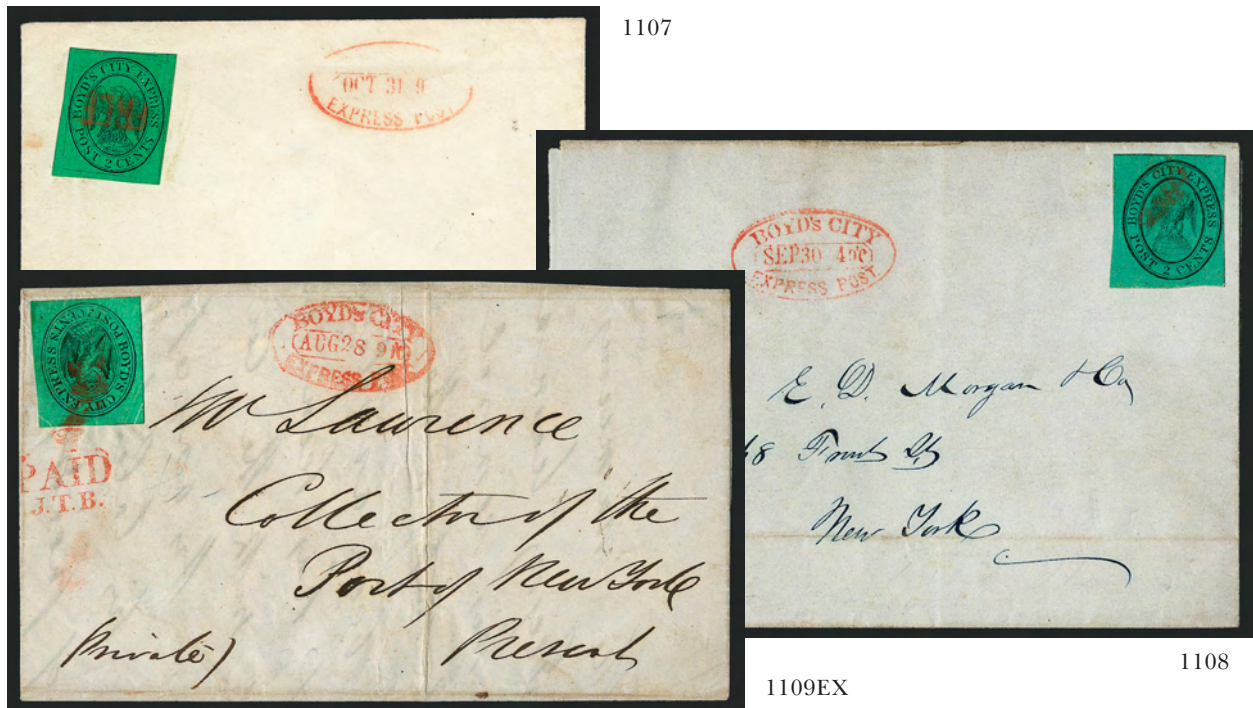 1107
BOYD'S CITY EXPRESS
POST 2 CENTS
OCT 31 9
EXPRESS POST
BOYD'S CITY EXPRESS
POST 2 CENTS
BOYD'S CITY
SEP 30 4
EXPRESS POST
E. D. Morgan & Co
Front St
New York
1108
BOYD'S CITY EXPRESS
POST 2 CENTS
BOYD'S CITY
AUG 28 9
EXPRESS
PAID
J.T.B.
Mr Lawrence
Collector of the
Port of New York
Present
(Private)
1109EX